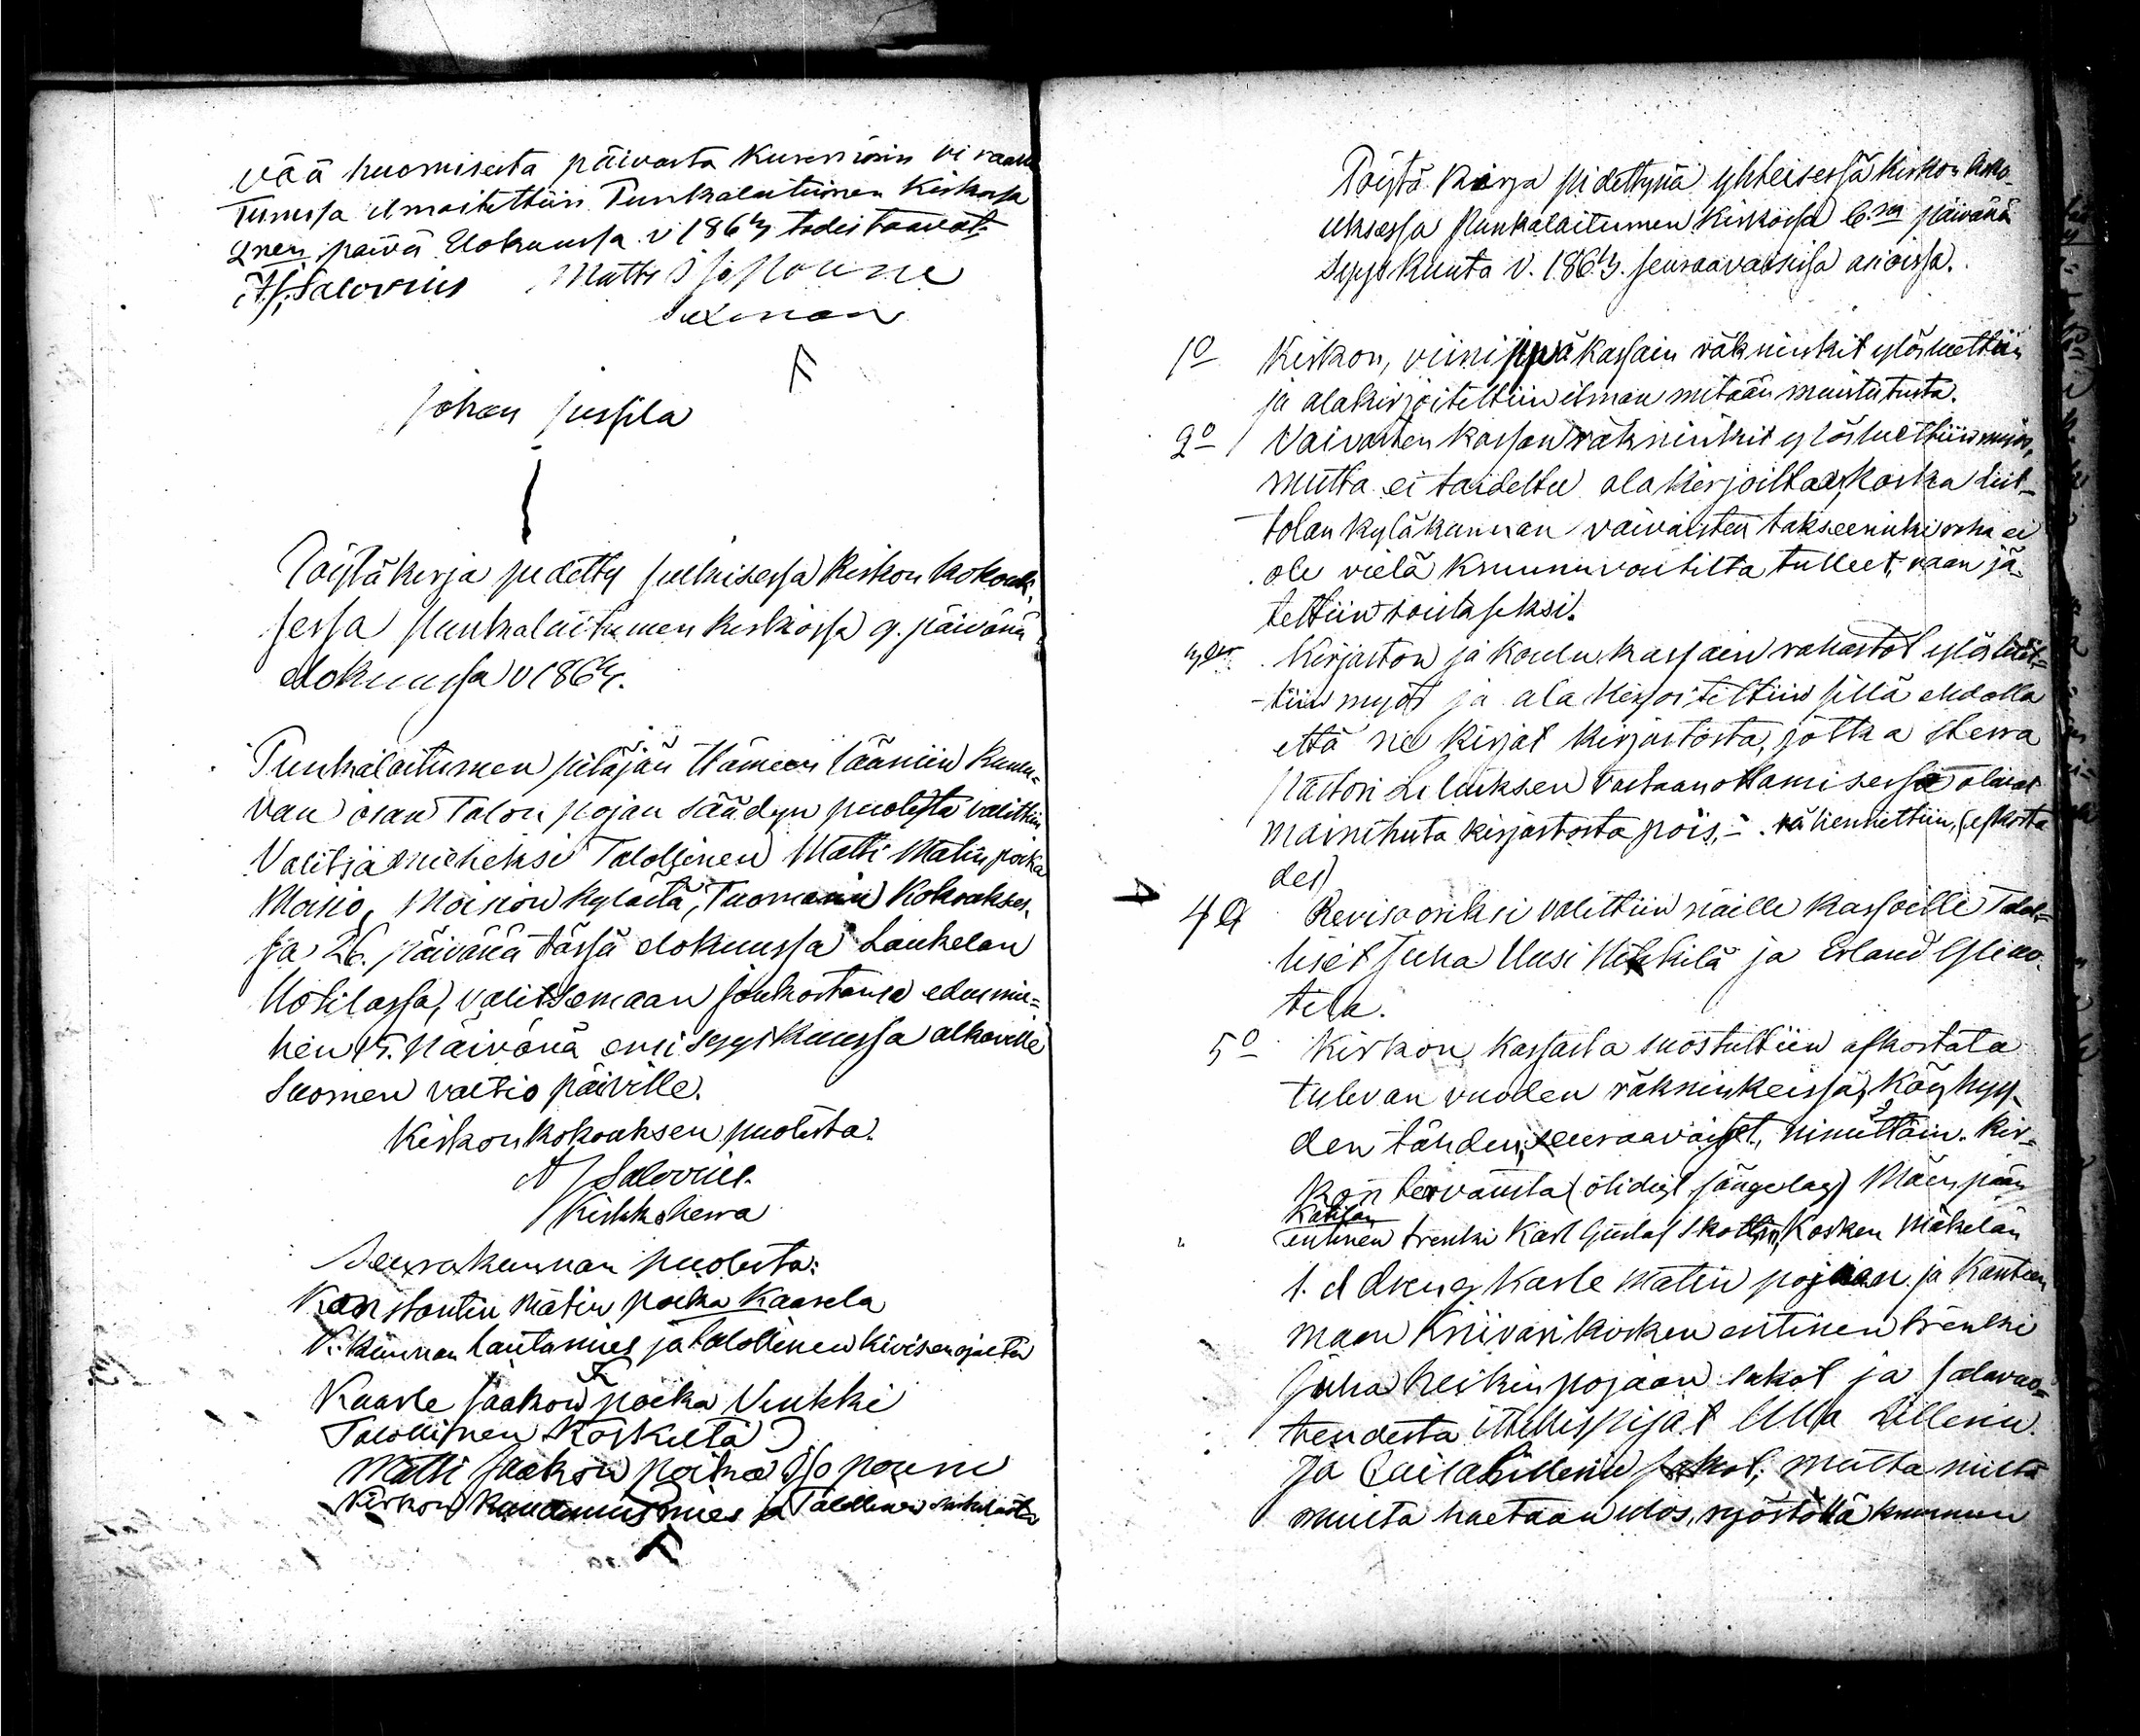 vää huomisesta päivästä Kuvernöörin vi raas
Tunussa ilmoitettiin Punkalaitumen Kirkossa
2nen päivä Elokuussa v 1863 todistaavat:
A J Salovius Matts Isopoune
Johan Jussila
Pöytäkirja pidetty julkisessa Kirkon kokouk-
sessa Punkalaitumen kirkossa 9. päivänä
elokuussa v 1863.
Punkalaitumen pitäjän Hämeen lääniin kuulu-
van osan Talon pojan säädyn puolesta valittiin
Valitsiamieheksi Talollinen Matti Matin poika
Moisio, Moision kylästä, Tuomarin Kokoukses-
sa 26. päivänä tässä elokuussa Laukelan
Uotilassa, valitsemaan joukostansa edusmie-
hen 15. päivänä ensi syyskuussa alkaville
Suomen valtio päiville.
Kirkonkokouksen puolesta.
A J Salovius.
Kirkkoherra
Seurakunnan puolesta:
Konstantin Matin poika Kaarela
V. kunnan lautamies ja talollinen Kivisenojalta
Kaarle Jaakon poika Vinkki
Talollinen Koskelta
Matti Jaakon poika Isopoune
Kirkon kuudennusmies ja Talollinen
Pöytä kirja pidettynä yhteisessä kirkon koko-
uksessa Punkalaitumen Kirkossa 6na päivänä
Syys kuuta v. 1863. seuraavaisissa asioissa.
1o Kirkon, viini kassain räkninkit ylösluettiin
ja alakirjoitettiin ilman mitään muistutusta.
2o Vaivasten kassan räkninkit ylösluettiin myös,
mutta ei taidettu alakirjoittaa, koska Liit-
tolan kyläkunnan vaivaisten takseerinki raha ei
ole vielä kruununvoutilta tulleet, vaan jä-
tettiin toistaseksi.
Kirjaston ja Koulu kassain rahastot ylösluet-
tiin myös ja ala kirjoitettiin sillä ehdolla
että ne kirjat kirjastosta, jotka Herra
Pastori Liliuksen vastaanottamisessa olivat
mainitusta kirjastosta pois, - vähennettiin, (afkorta
des)
4o Revisooriksi valittiin näille kassoille Talol-
liset Juha Uusi Uitkilä ja Erland Ylino-
tila.
5o Kirkon kassasta suostuttiin afkortata
tulevan vuoden räkninkeissä, köyhyy-
den tähden, seuraavaiset, nimittäin. Kir-
kon tervausta (olidigt sängelag) Mäenpään
Kakilan
entinen trenki Karl Gustaf Skottin, Kosken Mäkelän
t. d dreng Karle Matin pojaan ja Kanteen
maan Kriivarikosken entinen trenki
Juha Heikin pojaan sakot ja salavuo-
teudesta itellispijat Ulla Lillerin
ja Lillerin sakot; mutta niiltä
muilta haetaan ulos, ryöstöllä kruunun